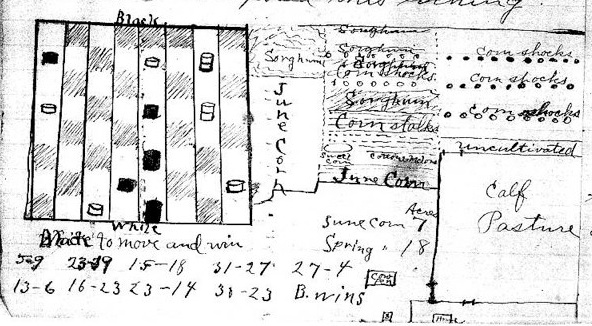 Black
White
Black to move and win
5-9 23-19 15-18 31-27 27-4
13-6 16-23 23-14 30-23 B. wins
Sorghum
Sorghum
Sorghum
Sorghum
Corn shocks
Sorghum
Corn stalks
June Corn
June Corn
Corn shocks
Corn shocks
Corn shocks
uncultivated
Calf
Pasture
Acres
June Corn 7
Spring " 18
Cow
Pen